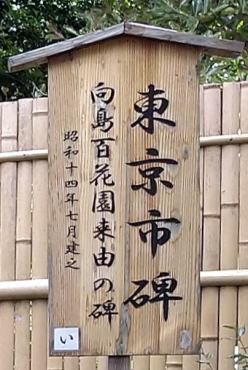 東京市碑
向島百花園来由の碑
昭和十四年七月建之
い